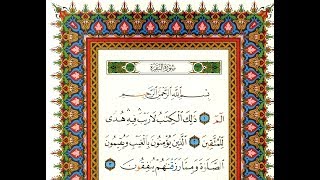 سورة البقرة
بسم الله الرحمن الرحيم
الم ۝ ذلك الكتب لا ريب فيه هدى
للمتقين ۝ الذين يؤمنون بالغيب ويقيمون
الصلوة ومما رزقنهم ينفقون